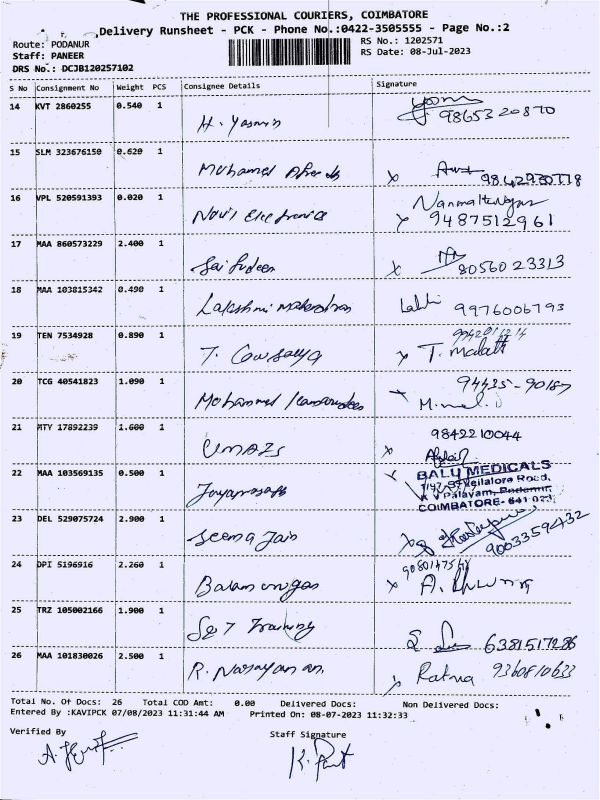 THE PROFESSIONAL COURIERS, COIMBATORE
Delivery Runsheet - PCK - Phone No.:0422-3505555 - Page No.:2
Route: PODANUR
RS No.: 1202571
Staff: PANEER
RS Date: 08-Jul-2023
DRS No.: DCJB120257102
S No Consignment No Weight PCS Consignee Details Signature
14 KVT 2860255 0.540 1 H. Yasmin 9865320870
15 SLM 323676150 0.620 1 Mohamed X
16 VPL 520591393 0.020 1 Novis Electronica
9487512961
17 MAA 860573229 2.400 1 Saifudeen X 8056023313
18 MAA 103815342 0.490 1 Lakshmi 9976006793
19 TEN 7534928 0.890 1 T. Cowsalya T. Malathi
20 TCG 40541823 1.090 1 Mohammed 94425-90187
21 MTY 17892239 1.600 1 9842210044
22 MAA 103569135 0.500 1 BALU MEDICALS
COIMBATORE- 641 023
23 DEL 529075724 2.900 1 Seema Jain 9003359432
24 DPI 5196916 2.260 1 Balamurugan
25 TRZ 105002166 1.900 1 Training
26 MAA 101830026 2.500 1 R. Narayanan Ratna 9360810633
Total No. Of Docs: 26 Total COD Amt: 0.00 Delivered Docs: Non Delivered Docs:
Entered By :KAVIPCK 07/08/2023 11:31:44 AM Printed On: 08-07-2023 11:32:33
Verified By
Staff Signature